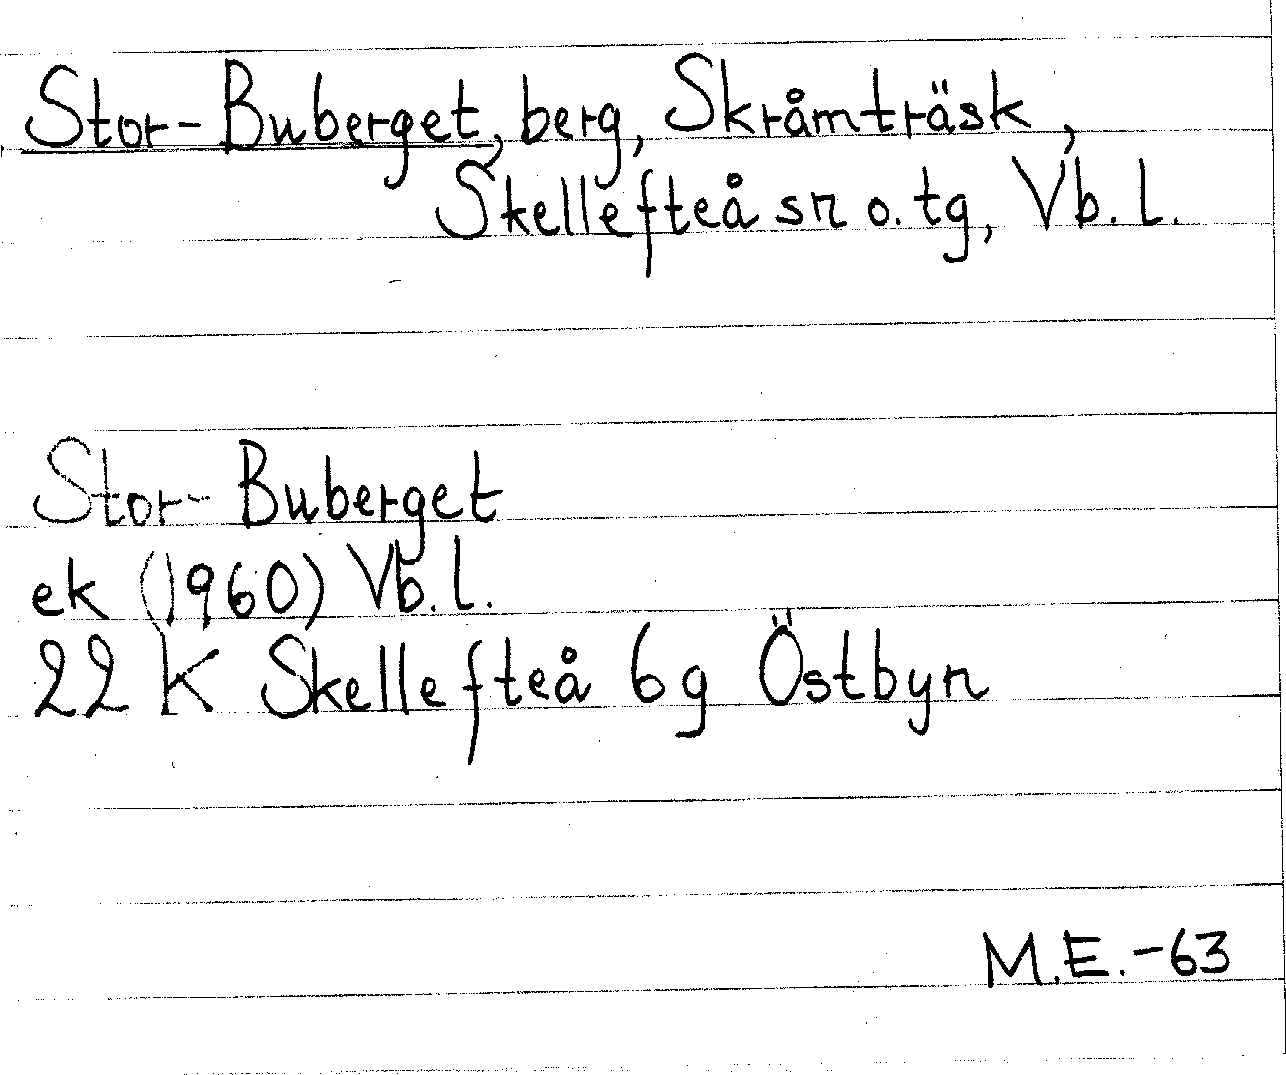 Stor-Buberget, berg, Skråmträsk,
Skellefteå sn o. tg, Vb. l.
Stor-Buberget
ek (1960) Vb. l.
22 K Skellefteå 6g Östbyn
M.E.-63